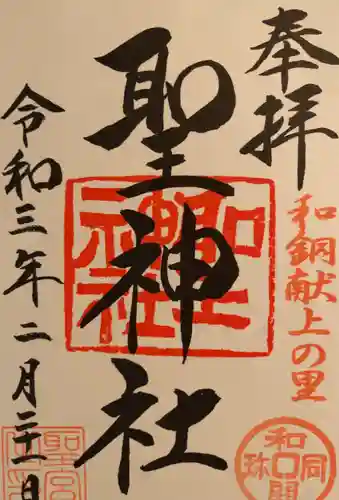 奉拝
和銅献上の里
聖神社
令和三年二月二十一日
聖神社
和同開珎